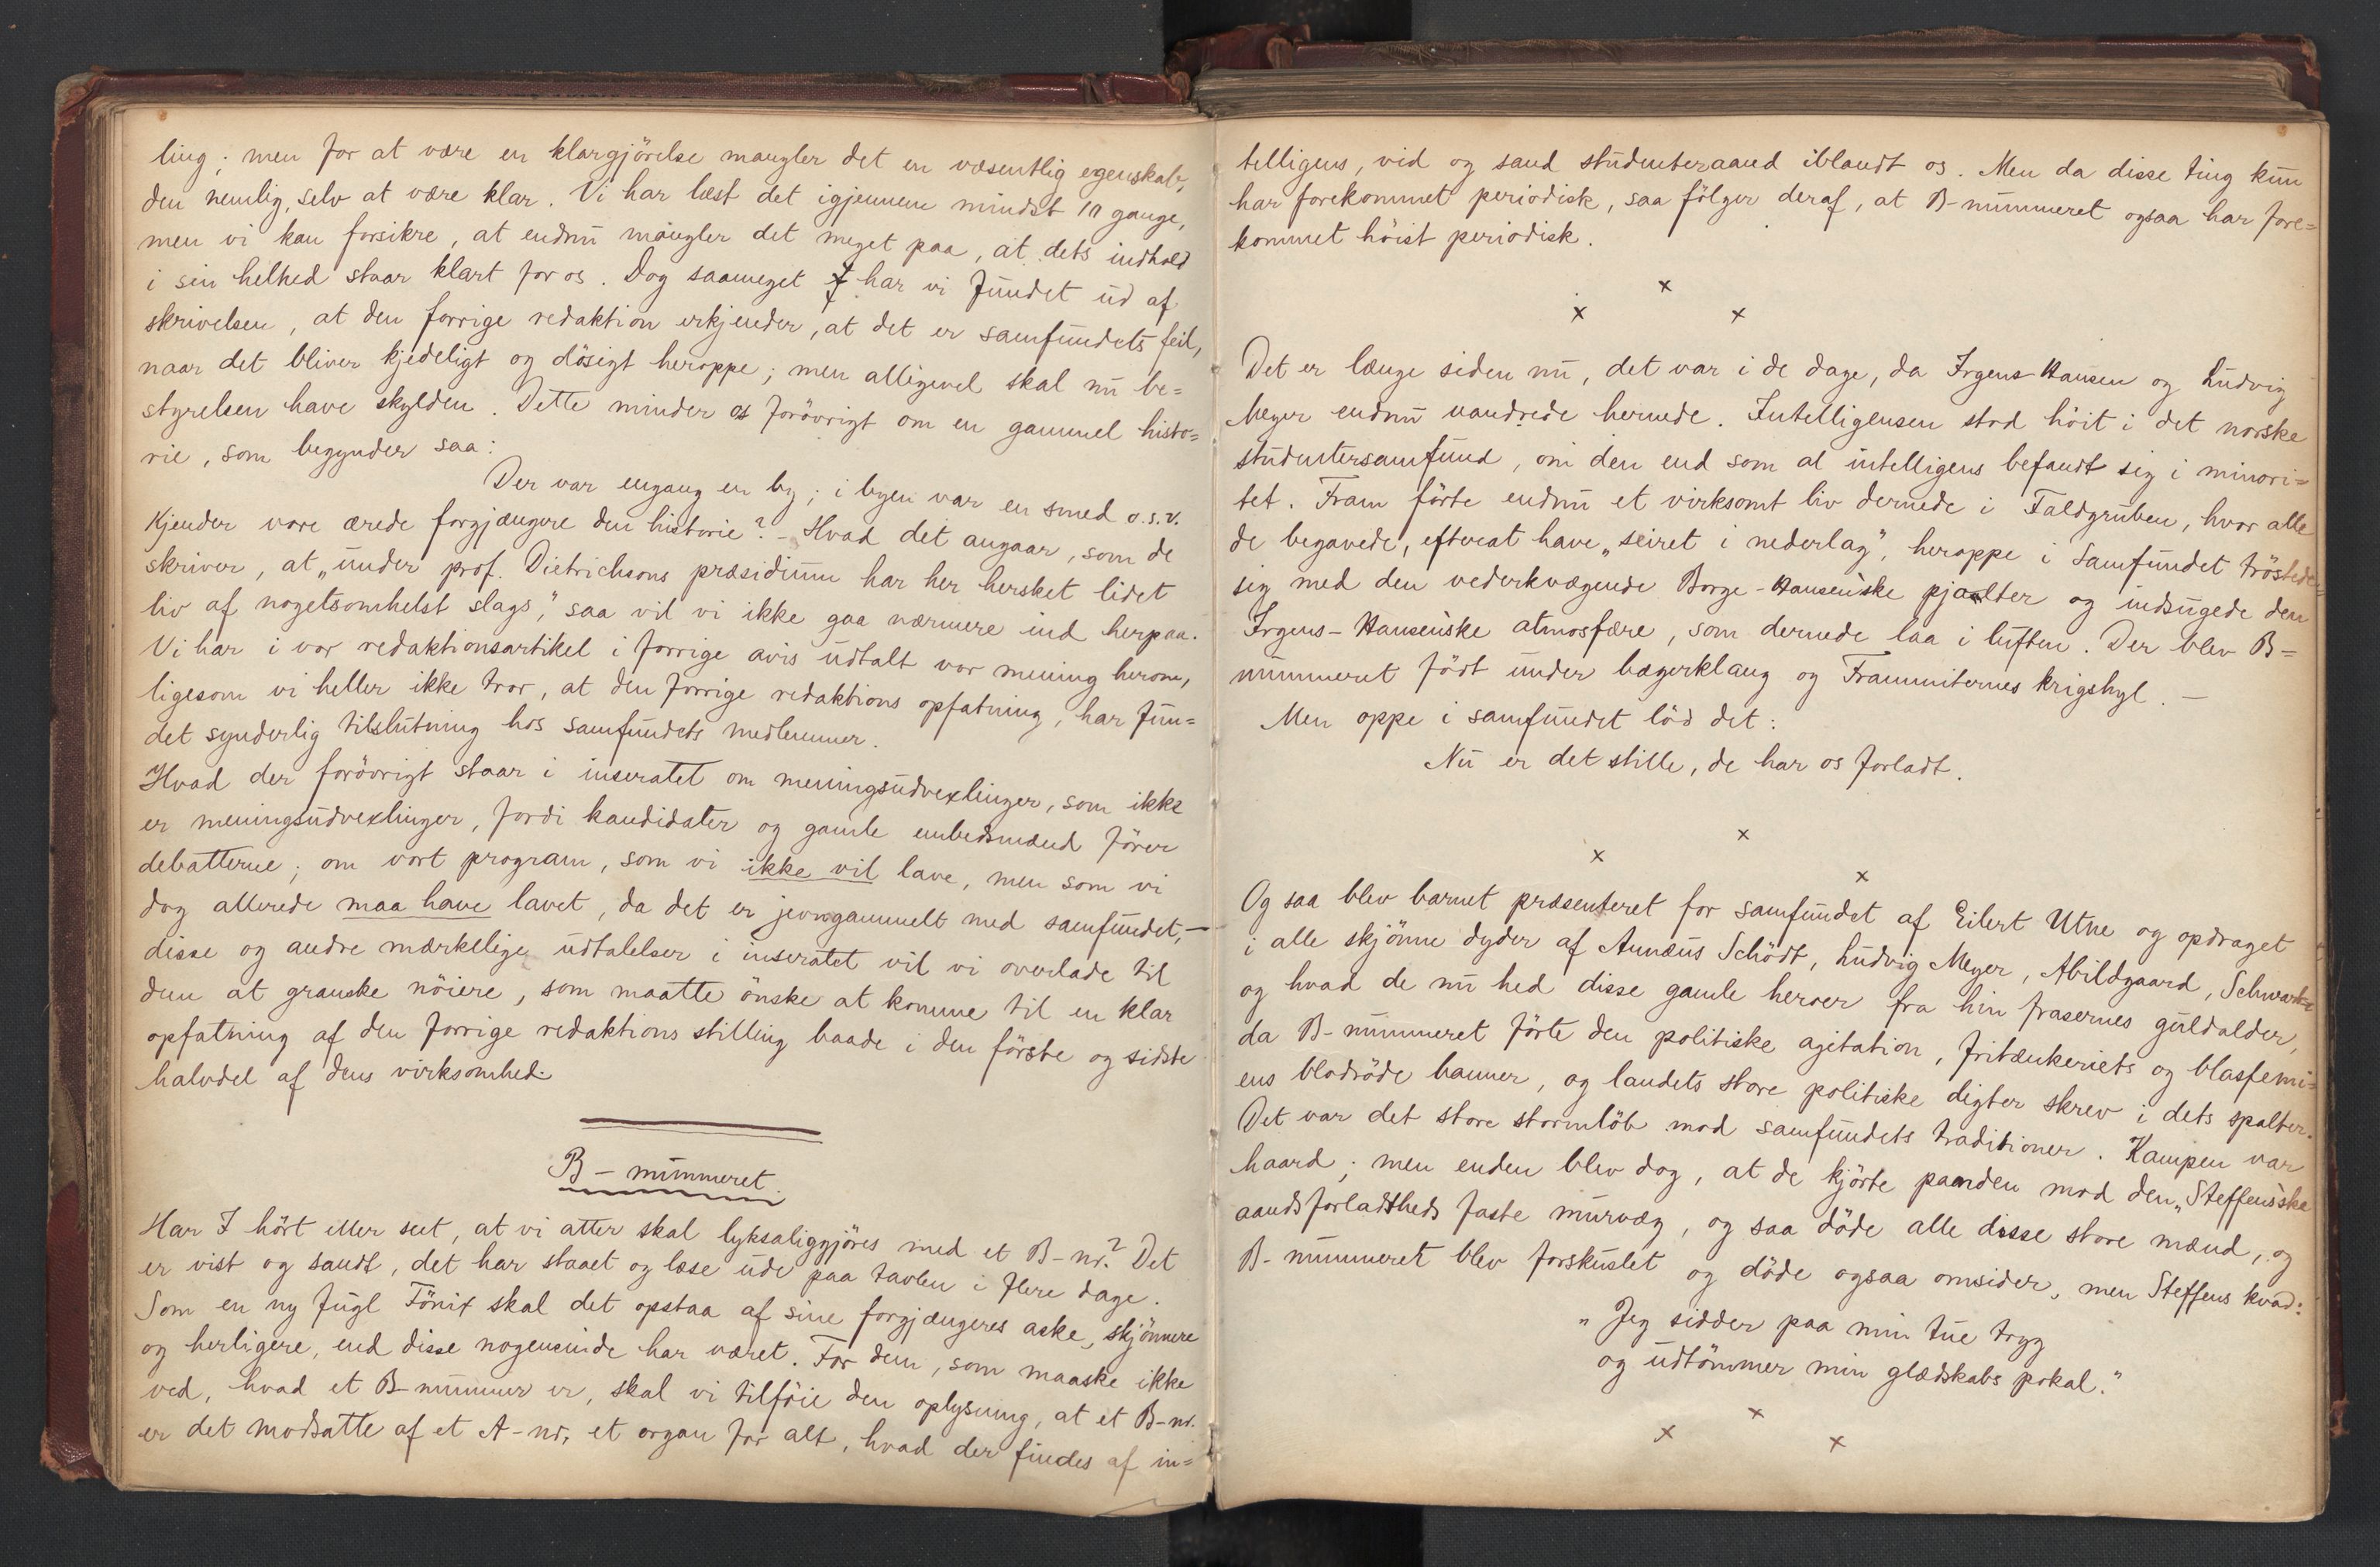 ling; men for at være en klargjörelse mangler det en væsentlig egenskab,
den nemlig, selv at være klar. Vi har læst det igjennem mindst 10 gange,
men vi kan forsikre, at endnu mangler det meget paa, at dets indhold
i sin helhed staar klart for os. Dog saameget har vi fundet ud af
skrivelsen, at den forrige redaktion erkjender, at det er samfundets feil,
naar det bliver kjedeligt og dösigt heroppe; men alligevel skal nu be=
styrelsen have skylden. Dette minder os forövrigt om en gammel histo=
rie, som begynder saa:
Der var engang en by; i byen var en smed o.s.v.
Kjender vore ærede forgjængere den historie? - Hvad det angaar, som de
skriver, at „under prof. Dietrichsons præsidium har her hersket lidet
liv af nogetsomhelst slags," saa vil vi ikke gaa nærmere ind herpaa.
Vi har i vor redaktionsartikel i forrige avis udtalt vor mening herom,
ligesom vi heller ikke tror, at den forrige redaktions opfatning, har fun=
det synderlig tilslutning hos samfundets medlemmer.
Hvad der forövrigt staar i inseratet om meningsudvexlinger, som ikke
er meningsudvexlinger, fordi kandidater og gamle embedsmænd förer
debatterne; om vort program, som vi ikke vil lave, men som vi
dog allerede maa have lavet, da det er jevngammelt med samfundet, —
disse og andre mærkelige udtalelser i inseratet vil vi overlade til
dem at granske nöiere, som maatte önske at komme til en klar
opfatning af den forrige redaktions stilling baade i den förste og sidste
halvdel af dens virksomhed.
B - nummeret.
Har I hört eller seet, at vi atter skal lyksaliggjöres med et B-nr.? Det
er vist og sandt, det har staaet og læse ude paa tavlen i flere dage.
Som en ny fugl Fönix skal det opstaa af sine forgjængeres aske, skjönnere
og herligere, end disse nogensinde har været. For dem, som maaske ikke
ved, hvad et B-nummer er, skal vi tilföie den oplysning, at et B-nr.
er det modsatte af et A-nr, et organ for alt, hvad der findes af in=
telligens, vid og sand studenteraand iblandt os. Men da disse ting kun
har forekommet periodisk, saa fölger deraf, at B-nummeret ogsaa har fore=
kommet höist periodisk.
x
x x
Det er længe siden nu, det var i de dage, da Irgens-Hansen og Ludvig
Meyer endnu vandrede hernede. Intelligensen stod höit i det norske
studentersamfund, om den end som al intelligens befandt sig i minori=
tet. Fram förte endnu et virksomt liv dernede i Faldgruben, hvor alle
de begavede, efterat have „seiret i nederlag", heroppe i Samfundet tröstede
sig med den vederkvægende Borge-Hansen'ske pjalter og indsugede den
Irgens-Hansen'ske atmosfære, som dernede laa i luften. Der blev B=
nummeret födt under bægerklang og Frammiternes krigshyl. —
Men oppe i samfundet löd det:
Nu er det stille, de har os forladt.
x
x x
Og saa blev barnet præsenteret for samfundet af Eilert Utne og opdraget
i alle skjönne dyder af Annæus Schödt, Ludvig Meyer, Abildgaard, Schwartz
og hvad de nu hed disse gamle heroer fra hin frasernes guldalder,
da B-nummeret förte den politiske agitation, fritænkeriets og blasfemi=
ens blodröde banner, og landets store politiske digter skrev i dets spalter.
Det var det store stormlöb mod samfundets traditioner. Kampen var
haard; men enden blev dog, at de kjörte panden mod den „Steffens'ske
aandsforladtheds faste murvæg, og saa döde alle disse store mænd, og
B-nummeret blev forskuslet og döde ogsaa omsider, men Steffens kvad:
„Jeg sidder paa min tue tryg
og udtömmer min glædskabs pokal."
x
x x